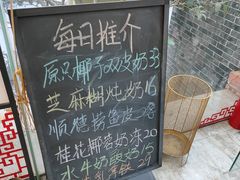 每日推介
原只椰子双皮奶33
芝麻糊炖奶16
顺德拌鱼皮28
桂花椰蓉奶冻20
水牛奶酸奶15
29